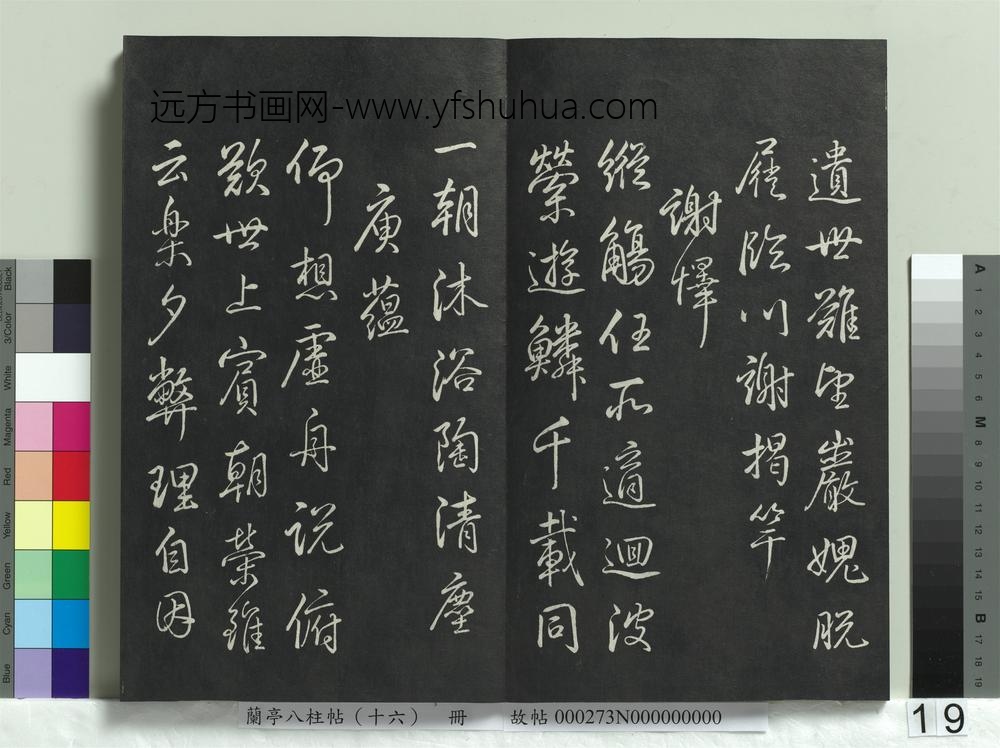 远方书画网-www.yfshuhua.com
遺世難望巖愧脫
屣臨川謝揭竿
謝懌
縱觴任所適迴波
縈遊鱗千載同
一朝沐浴陶清塵
庾蘊
仰想虛舟說俯
歎世上賓朝榮雖
云樂夕弊理自因
蘭亭八柱帖（十六） 冊 故帖 000273N000000000
19
Black
3/Color
White
Magenta
Red
Yellow
Green
Cyan
Blue
A 1 2 3 4 5 6 M 8 9 10 11 12 13 14 15 B 17 18 19